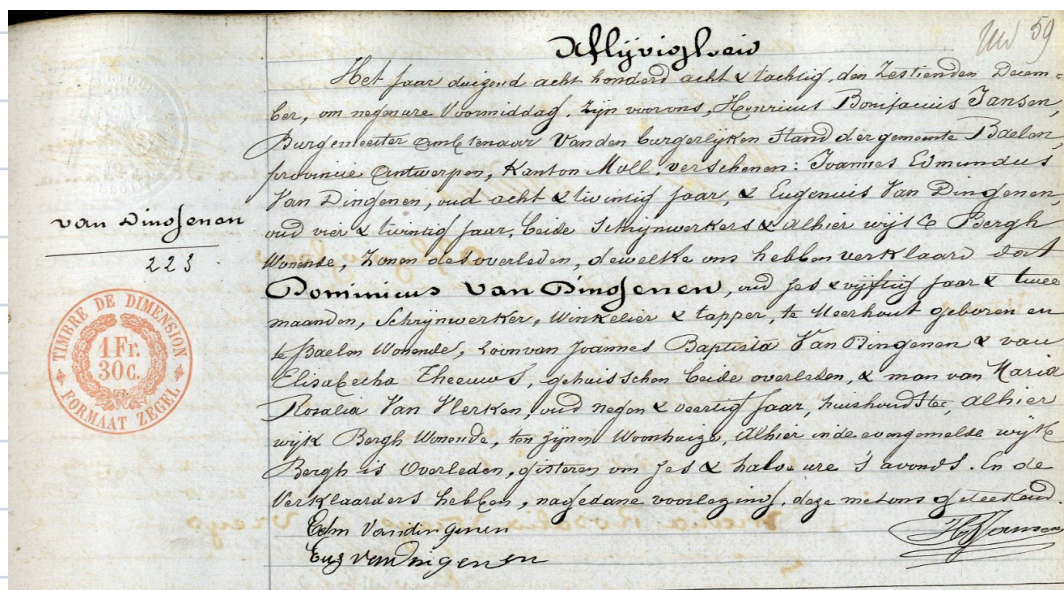 Aflijvigheid
59
Het jaar duizend acht honderd acht & tachtig, den Zestienden Decem-
ber, om negen ure Voormiddag, zijn voor ons, Henricus Bonifacius Jansen,
Burgemeester Ambtenaar van den burgerlijken Stand der gemeente Baelen,
provincie Antwerpen, Kanton Moll, verschenen: Joannes Edmundus
Van Dingenen, oud acht & twintig jaar, & Eugenius Van Dingenen,
oud vier & twintig jaar, beide Schrijnwerkers & alhier wijk Bergh
Wonende, Zonen des overleden, dewelke ons hebben verklaard dat
Dominicus Van Dingenen, oud zes & vijftig jaar & twee
maanden, Schrijnwerker, Winkelier & tapper, te Meerhout geboren en
te Baelen Wonende, zoon van Joannes Baptista Van Dingenen & van
Elisabetha Theeuws, gehuisschen beide overleden, & man van Maria
Rosalia Van Vlerken, oud negen & veertig jaar, huishoudster, alhier
wijk Bergh Wonende, ten zijnen Woonhuize, alhier in de evengemelde wijk
Bergh is Overleden, gisteren om zes & halve ure 's avonds. En de
Verklaarders hebben, na gedane voorlezing, deze met ons geteekend.
Edm Vandingenen
Eug Vandingenen
HBJansen
Van Dingenen
223.
TIMBRE DE DIMENSION
1 Fr.
30 c.
FORMAAT ZEGEL